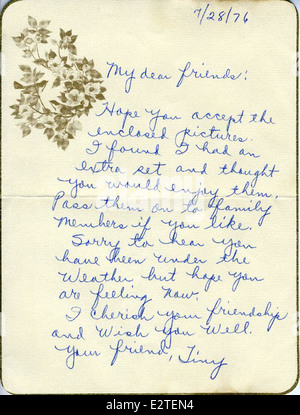 7/28/76
My dear friends:
Hope you accept the
enclosed pictures.
I found I had an
extra set and thought
you would enjoy them.
Pass them on to family
members if you like.
Sorry to hear you
have been under the
weather but hope you
are feeling now.
I cherish your friendship
and wish you well.
Your friend, Tiny
alamy
www.alamy.com - E2TEN4